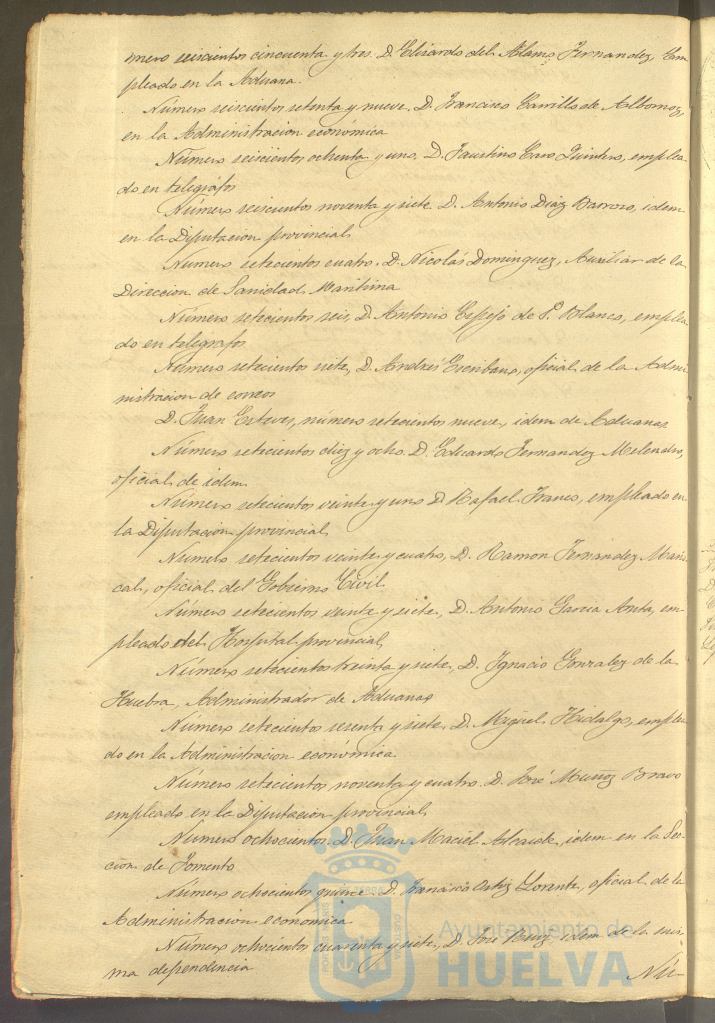 mero seiscientos cincuenta y tres. D. Elisardo del Alamo Fernandez, Em
pleado en la Aduana.
Número seiscientos setenta y nueve. D. Francisco Carrillo de Albornoz,
en la Administracion económica
Número seiscientos ochenta y uno, D. Faustino Caro Quintero, emplea
do en telegráfos
Número seiscientos noventa y siete D. Antonio Diaz Barroso, idem
en la Diputacion provincial
Número setecientos cuatro. D. Nicolás Dominguez, Auxiliar de la
Direccion de Sanidad Maritima
Número setecientos seis, D. Antonio Espejo de P. Blanco, emplea
do en telegrafos
Número setecientos siete, D. Andrés Escribano, oficial de la Admi
nistracion de correos
D. Juan Esteves, número setecientos nueve, idem de Aduanas
Número setecientos diez y ocho. D. Eduardo Fernandez Melendro,
oficial de idem
Número setecientos veinte y uno D. Rafael Franco, empleado en
la Diputacion provincial
Número setecientos veinte y cuatro, D. Ramon Fernandez Maris
cal, oficial del Gobierno Civil.
Número setecientos veinte y siete, D. Antonio Garcia Anta, em
pleado del Hospital provincial
Número setecientos treinta y siete, D. Ignacio Gonzalez de la
Huebra, Administrador de Aduanas
Número setecientos sesenta y siete, D. Miguel Hidalgo, emplea
do en la Administracion económica
Número setecientos noventa y cuatro. D. José Muñoz Bravo
empleado en la Diputacion provincial
Número ochocientos. D. Juan Maciel Alcaide, idem en la Sec
cion de Fomento
Número ochocientos quince. D. Francisco Ortiz Lorente, oficial de la
Administracion economica
Número ochocientos cuarenta y siete, D. José Ruiz idem de la mis
ma dependencia
Nú-
Ayuntamiento de
HUELVA